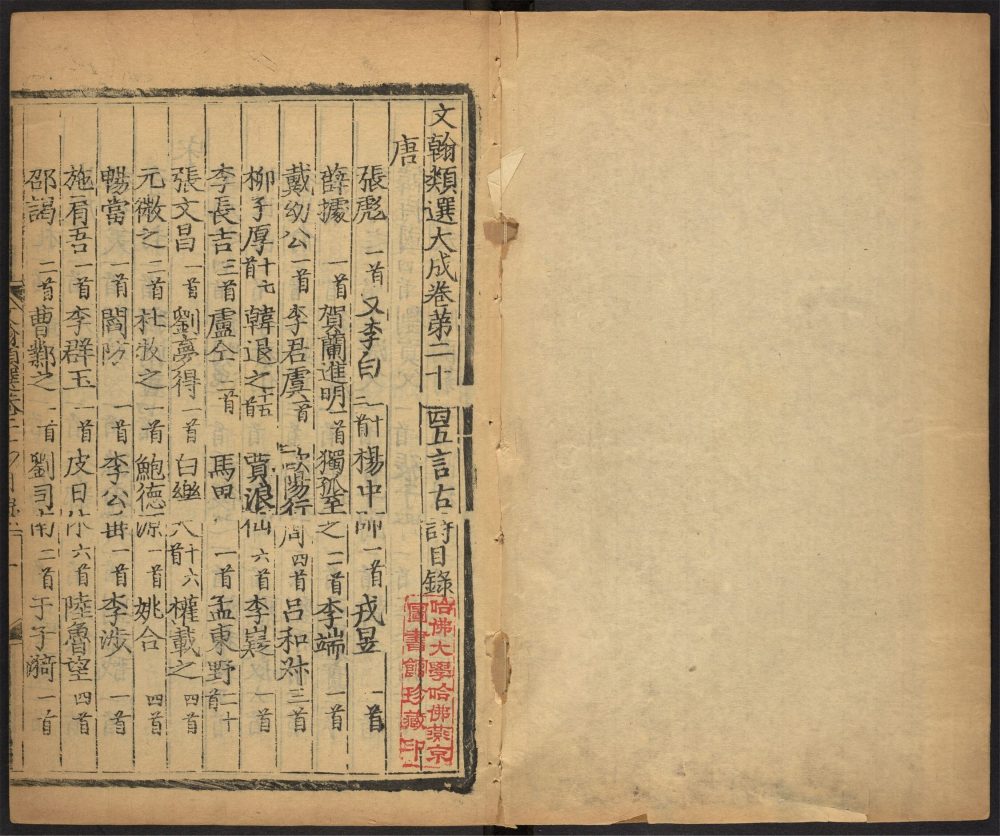 文翰類選大成卷第二十四五言古詩目錄
唐
張彪一首 又李白二十一首 楊中師一首 戎昱一首
薛據一首 賀蘭進明一首 獨孤至之二首 李端一首
戴幼公一首 李君虞一首 歐陽行周四首 呂和叔三首
柳子厚十七首 韓退之十五首 賈浪仙六首 李嶷一首
李長吉三首 盧仝二首 馬 一首 孟東野二十首
張文昌一首 劉夢得一首 白樂天十六首 權載之四首
元微之二首 杜牧之一首 鮑德源一首 姚合四首
暢當一首 閻防一首 李公垂一首 李涉一首
施肩吾一首 李群玉一首 皮日休六首 陸魯望四首
邵謁二首 曹鄴之一首 劉司南二首 于子漪一首
哈佛大學哈佛燕京
圖書館珍藏印